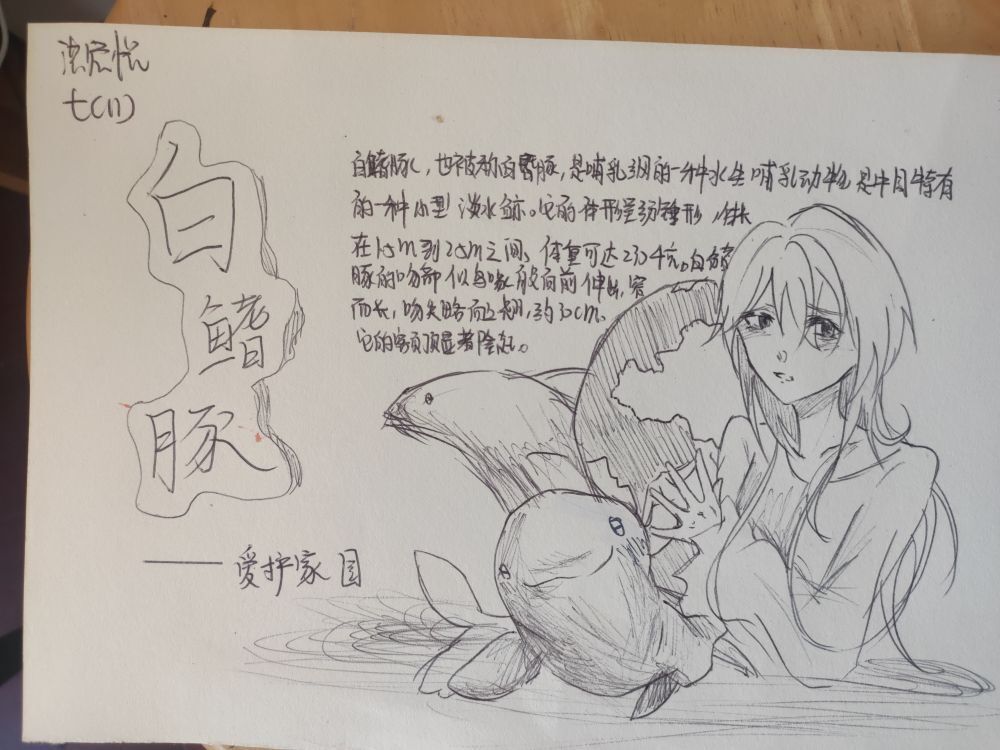 七(11)
白
鳍
豚
白鳍豚，也被称白鳍豚，是哺乳纲的一种水生哺乳动物 是中国特有
的一种小型淡水鲸。它的体形呈纺锤形，体长
在1.5m到2.5m之间，体重可达230千克。白鳍
豚的吻部似鸟喙般向前伸出，窄
而长，吻尖略向上翘，约30cm。
它的额顶显著隆起。
——爱护家园